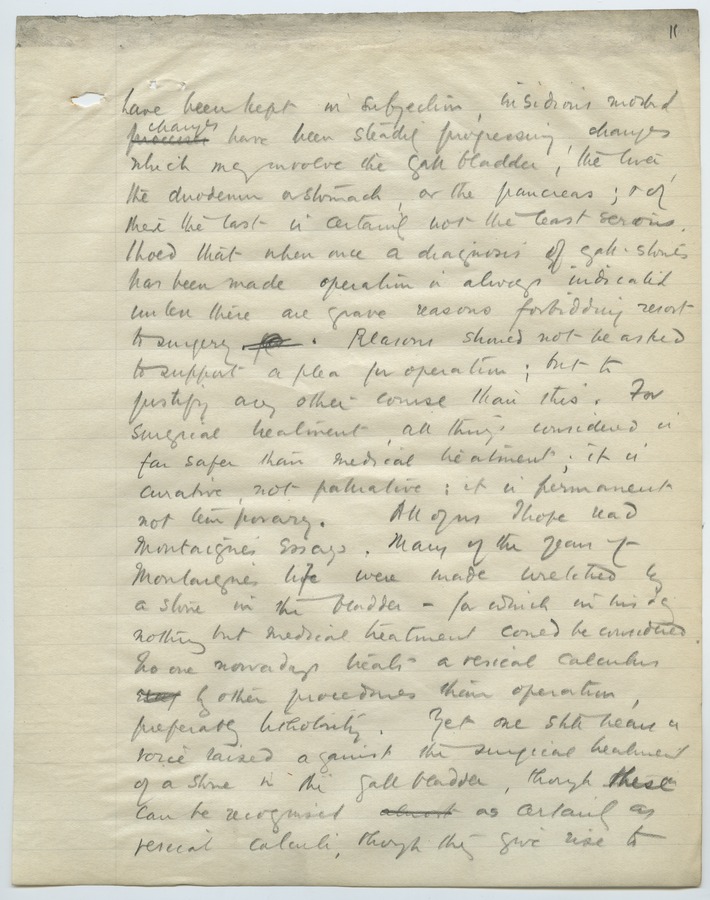 11
have been kept in subjection, insidious morbid
changes
processes have been steadily progressing, changes
which may involve the gall bladder, the liver,
the duodenum or stomach, or the pancreas; & of
these the last is certainly not the least serious.
I hold that when once a diagnosis of gall-stones
has been made operation is always indicated
unless there are grave reasons forbidding resort
to surgery. Reasons should not be asked
to support a plea for operation; but to
justify any other course than this. For
surgical treatment, all things considered is
far safer than medical treatment; it is
curative, not palliative; it is permanent
not temporary. All of us I hope read
Montaigne's Essays. Many of the years of
Montaigne's life were made wretched by
a stone in the bladder - for which in his day
nothing but medical treatment could be considered.
No one nowadays treats a vesical calculus
by other procedures than operation,
preferably litholrity. Yet one still hears a
voice raised against the surgical treatment
of a stone in the gall bladder, though these
can be recognised almost as certainly as
vesical calculi, though they give rise to